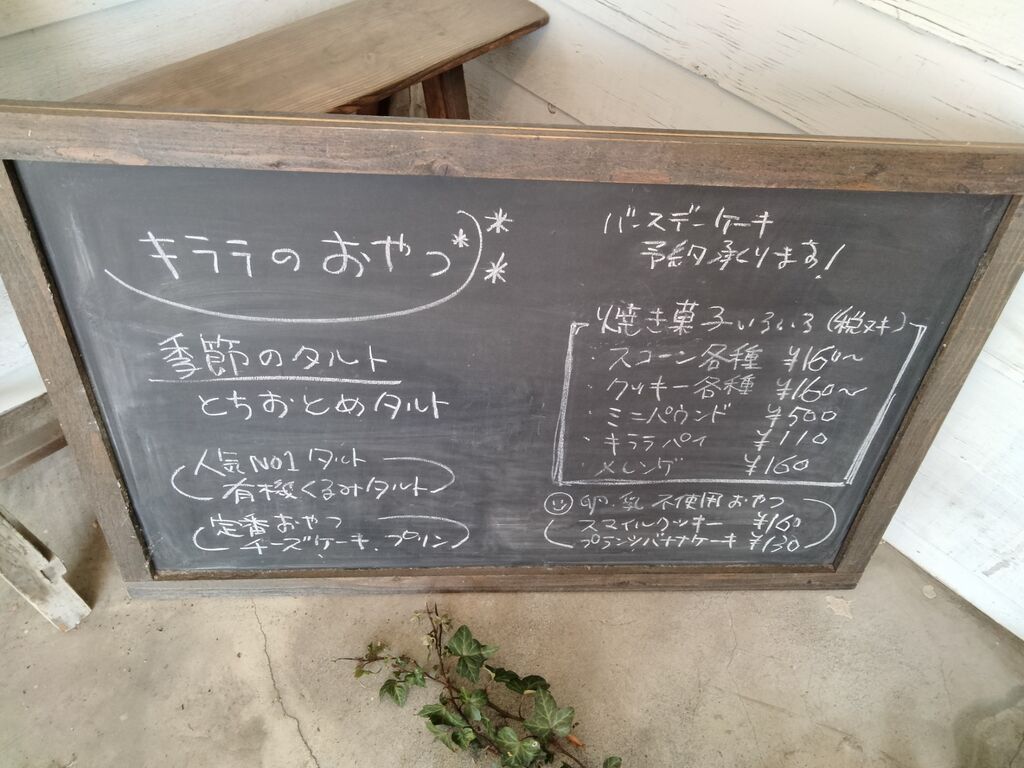 キララのおやつ
季節のタルト
とちおとめタルト
人気NO1タルト
有機くるみタルト
定番おやつ
チーズケーキ、プリン
バースデーケーキ
予約承ります!
焼き菓子いろいろ(税ヌキ)
・スコーン各種 ¥160~
・クッキー各種 ¥160~
・ミニパウンド ¥500
・キララパイ ¥110
・メレンゲ ¥160
卵・乳 不使用おやつ
スマイルクッキー ¥160
プランツバナナケーキ ¥130